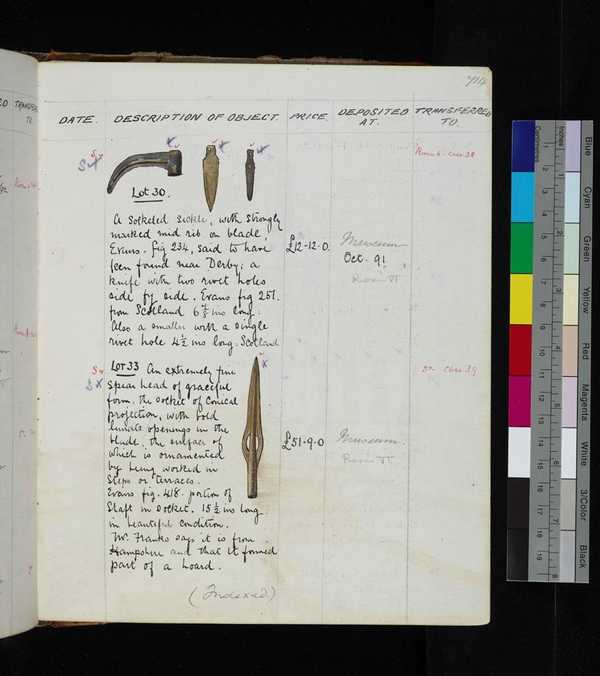 DATE. DESCRIPTION OF OBJECT. PRICE. DEPOSITED AT. TRANSFERRED TO.
Lot 30.
A Socketed Sickle, with strongly
marked mid rib on blade.
Evans. fig 234, said to have
been found near Derby; a
knife with two rivet holes
side by side. Evans fig 251.
from Scotland 6 7/8 ins long.
Also a smaller with a single
rivet hole 4 1/2 ins long. Scotland
£12-12-0.
Museum
Oct. 91.
Room VI
Room 6. Case 38
LOT 33 An extremely fine
Spear head of graceful
form. the socket of Conical
projection, with bold
lunate openings in the
blade. the surface of
which is ornamented
by being worked in
Steps or terraces.
Evans fig. 418. portion of
Shaft in socket. 15 1/2 ins long
in beautiful condition.
Mr. Franks says it is from
Hampshire and that it formed
part of a hoard.
£51-9-0
Museum.
Room VI
Do. Case 39
(Indexed)
Centimetres
Inches
1 2 3 4 5 6 7 8 9 10 11 12 13 14 15 16 17 18 19
1 2 3 4 5 6 7 8
Blue
Cyan
Green
Yellow
Red
Magenta
White
3/Color
Black